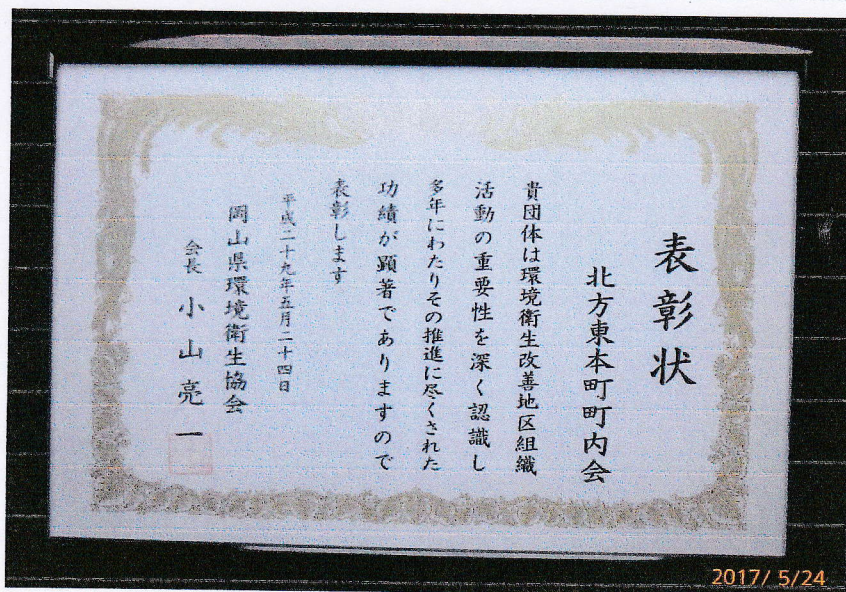 表彰状
北方東本町町内会
貴団体は環境衛生改善地区組織
活動の重要性を深く認識し
多年にわたりその推進に尽くされた
功績が顕著でありますので
表彰します
平成二十九年五月二十四日
岡山県環境衛生協会
会長 小山亮一
2017/ 5/24